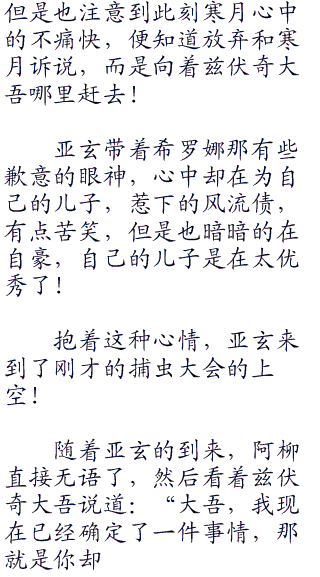 但是也注意到此刻寒月心中
的不痛快，便知道放弃和寒
月诉说，而是向着兹伏奇大
吾哪里赶去！
亚玄带着希罗娜那有些
歉意的眼神，心中却在为自
己的儿子，惹下的风流债，
有点苦笑，但是也暗暗的在
自豪，自己的儿子是在太优
秀了！
抱着这种心情，亚玄来
到了刚才的捕虫大会的上
空！
随着亚玄的到来，阿柳
直接无语了，然后看着兹伏
奇大吾说道：“大吾，我现
在已经确定了一件事情，那
就是你却